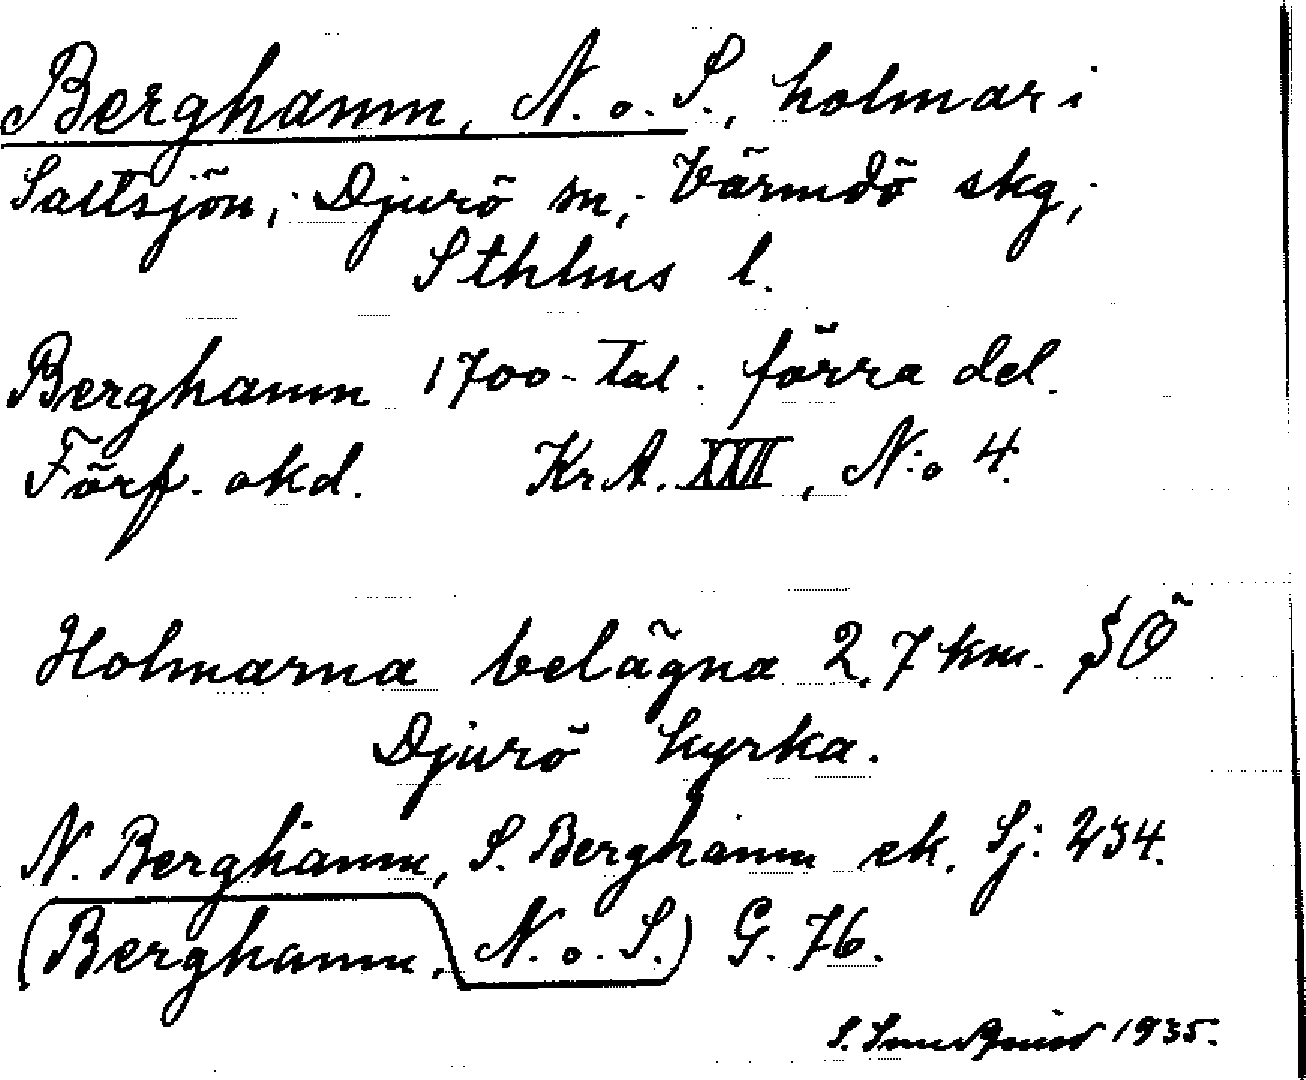 Berghamn, N. o. S., holmar i
Saltsjön, Djurö sn, Värmdö skg,
Sthlms l.
Berghamn 1700-tal. förra del.
Förf. okd. Kr.A. XXII, N:o 4.
Holmarna belägna 2,7 km. SÖ
Djurö kyrka.
N. Berghamn, S. Berghamn ek. Sj: 234.
(Berghamn, N. o. S.) G. 76.
S. 1935.